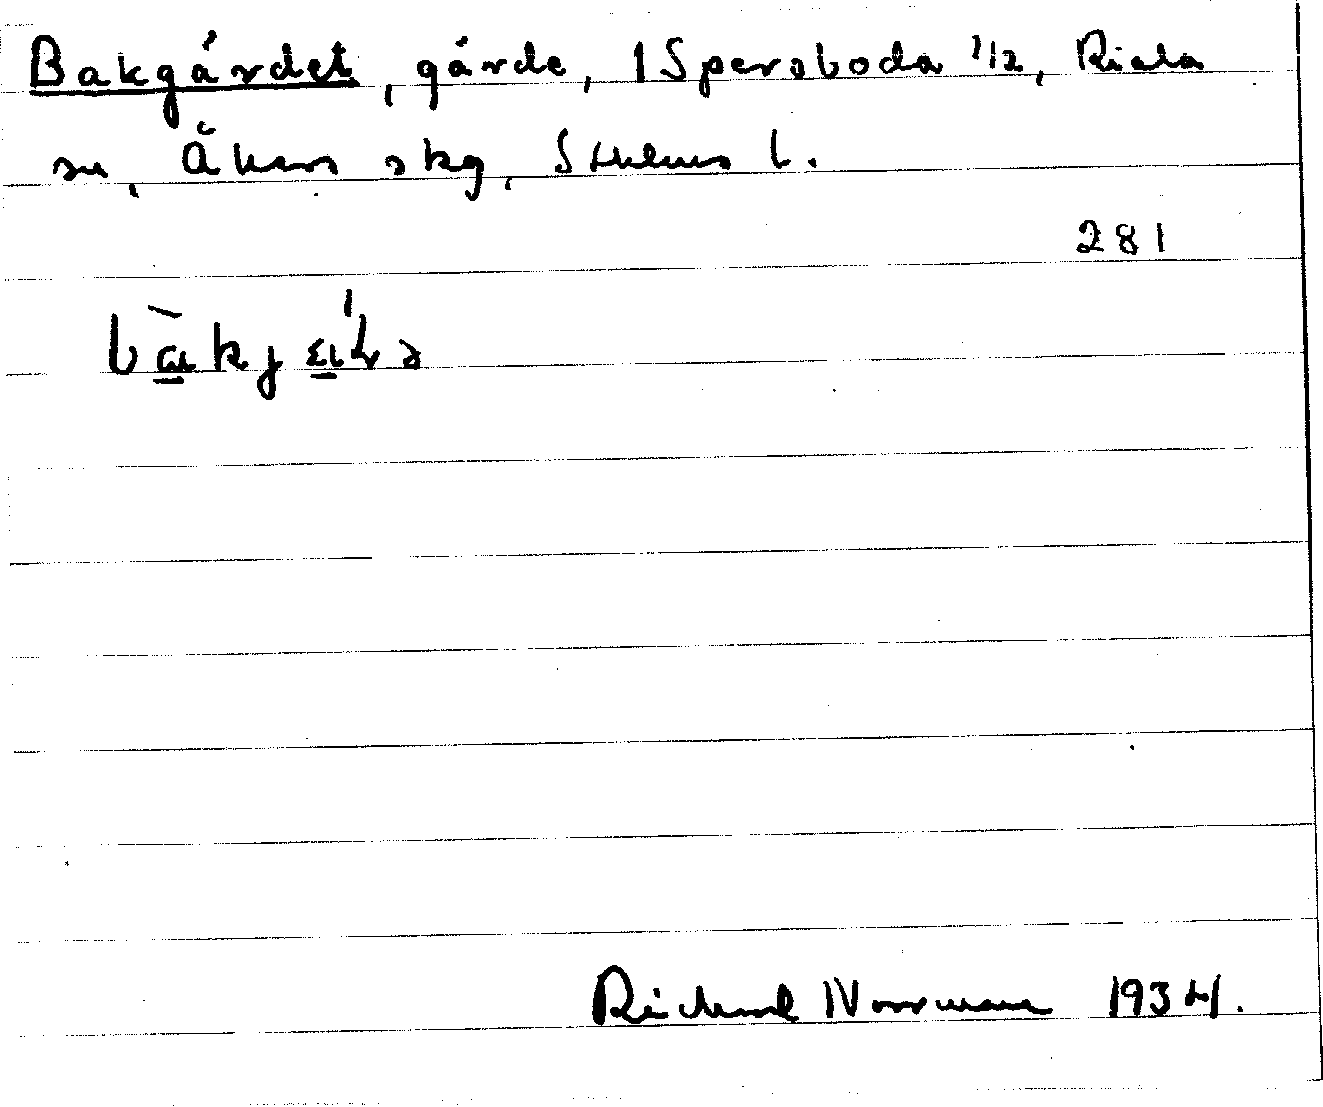 Bakgärdet, gärde, 1 Spersboda 1/2, Riala
sn, Åkers skg, Sthlms l.
281
Richard Norrman 1934.